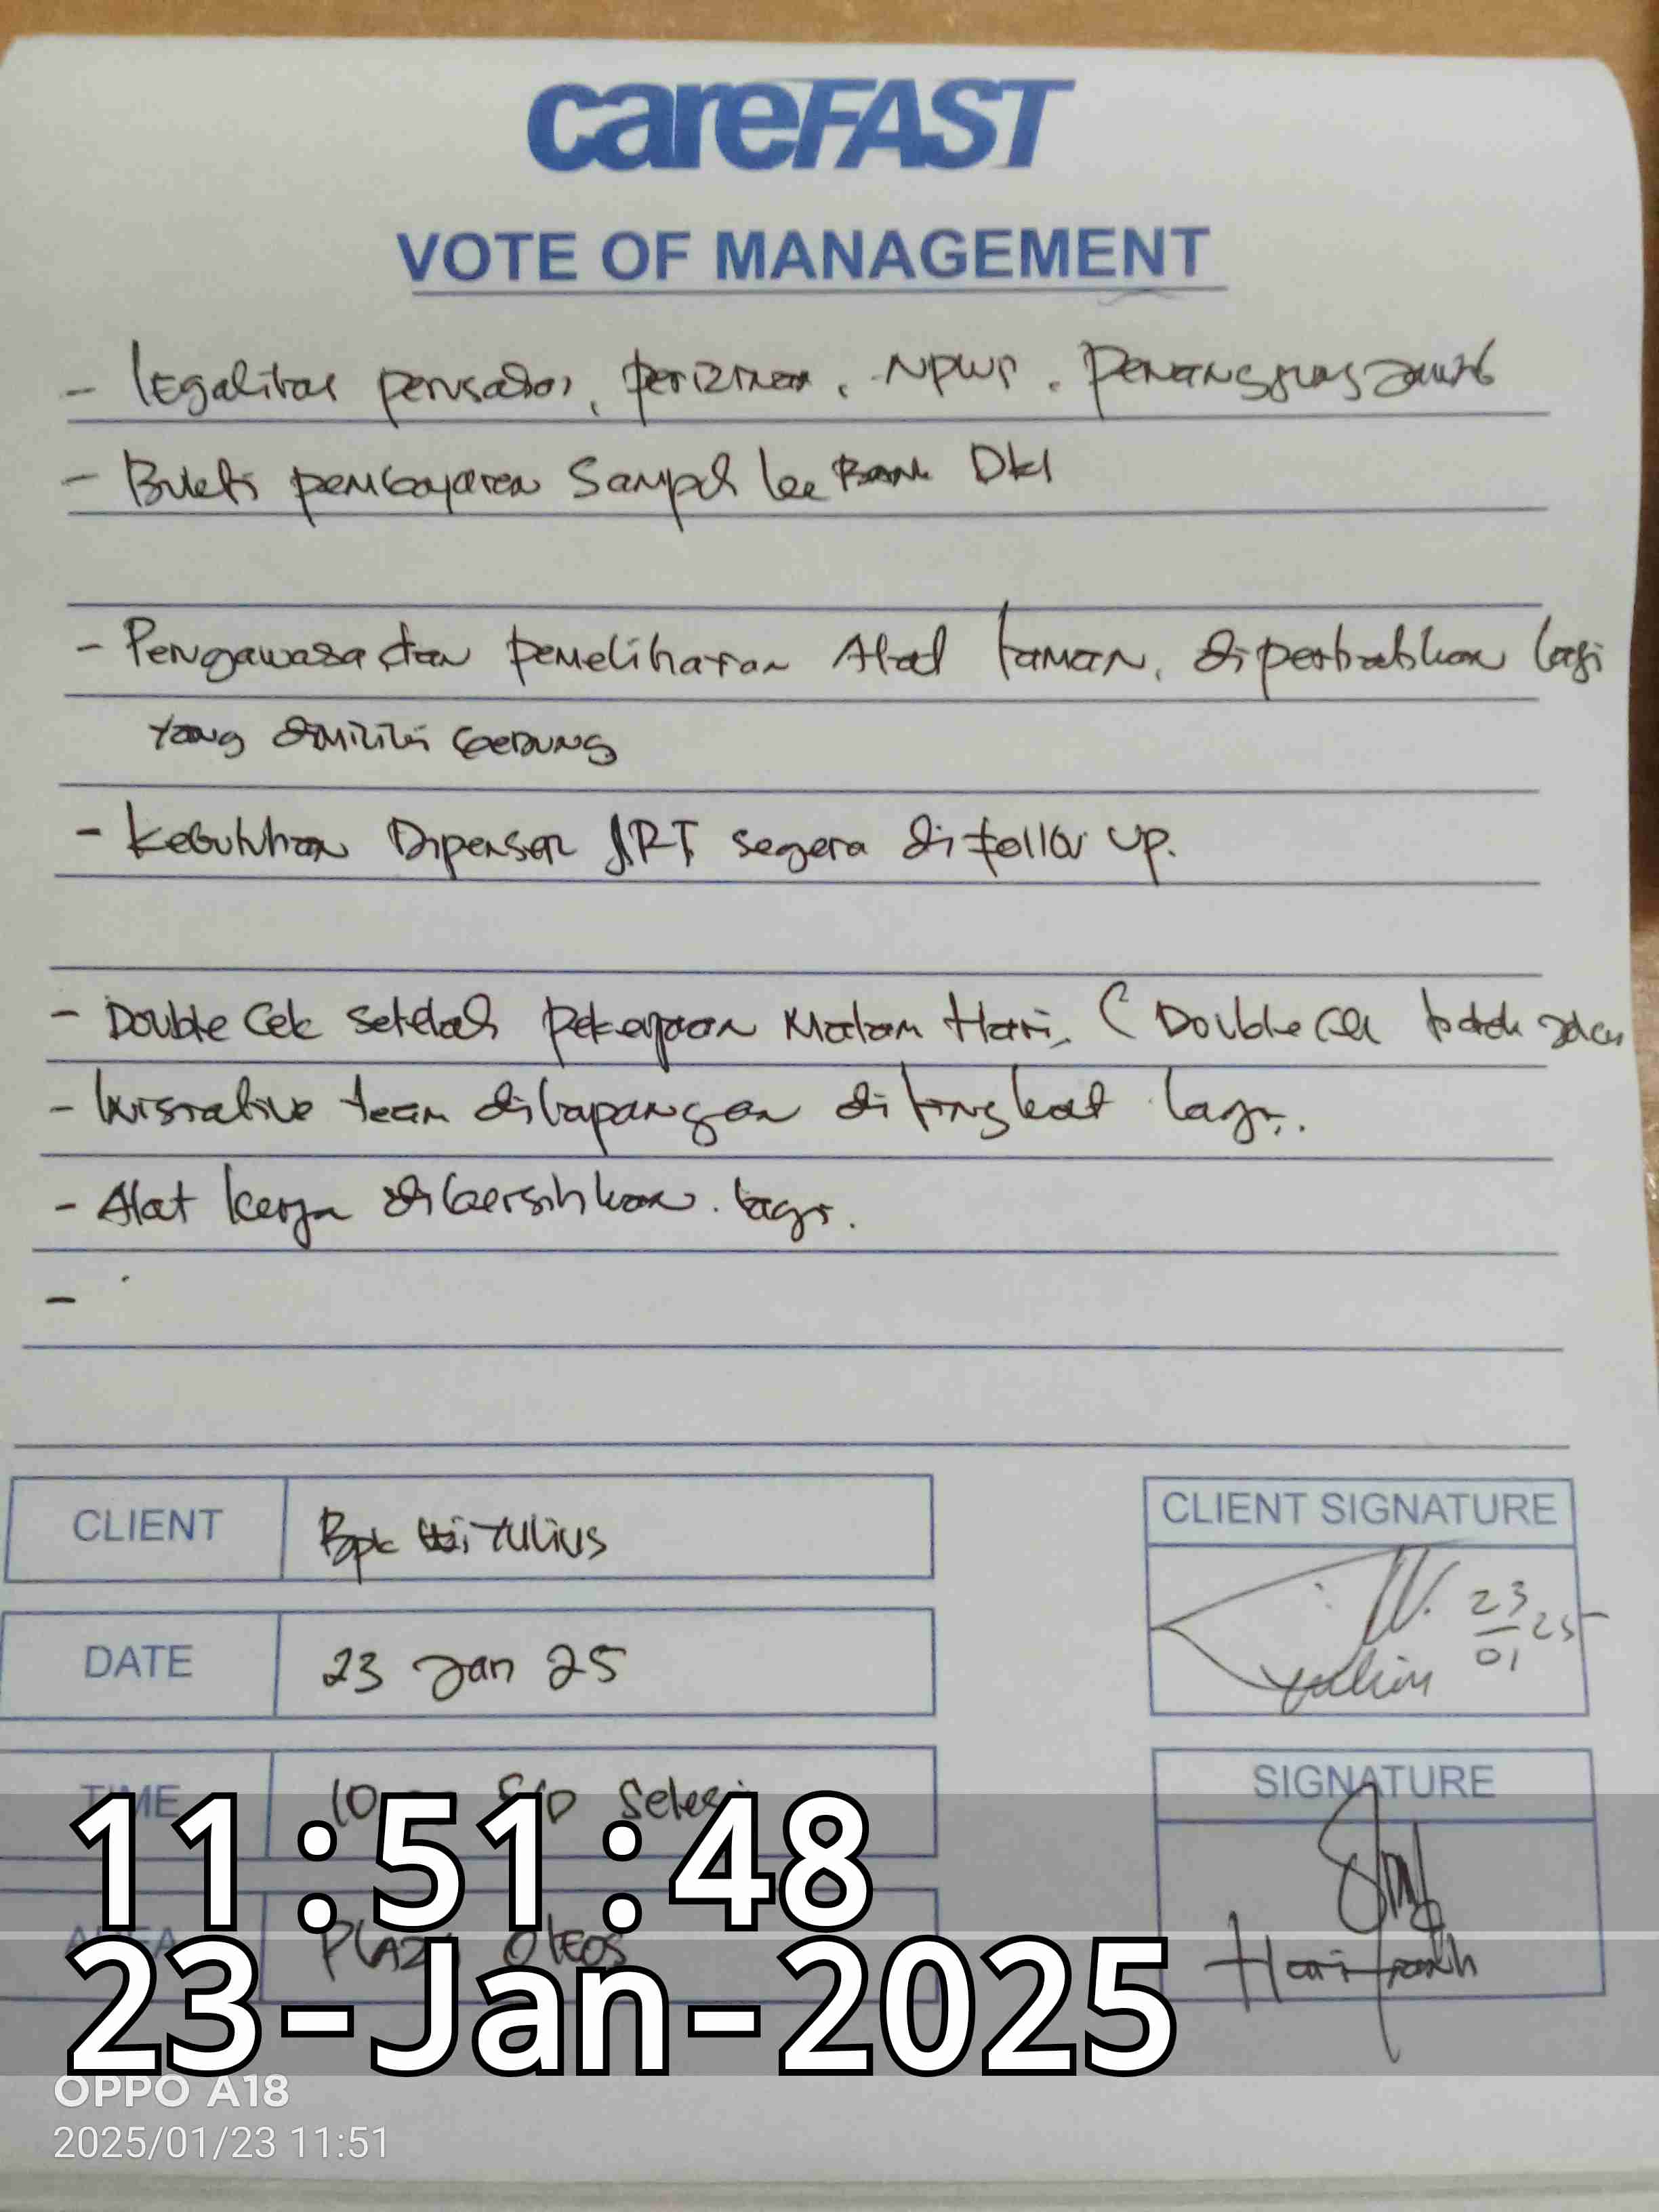 careFAST
VOTE OF MANAGEMENT
- Legalitas perusahan, perizinan, NPWP, Penanggung Jawab
- Bukti pembayaran Sampah ke Bank DKI
- Pengawasa dan pemeliharan Alat taman, diperbaikan lagi
yang dimiliki Gedung
- Kebutuhan Dipenser JRT segera di follow up.
- Double Cek setelah pekerjaan Malam Hari, ( Double Cek
- team dilapangan ditingkat lagi.
- Alat kerja dibersihkan lagi.
-
CLIENT
Bpk Yulius
CLIENT SIGNATURE
23
01 25
Yulius
DATE
23 Jan 25
TIME
S/D
SIGNATURE
Hari
AREA
PLAZA OLEOS
11:51:48
23-Jan-2025
OPPO A18
2025/01/23 11:51